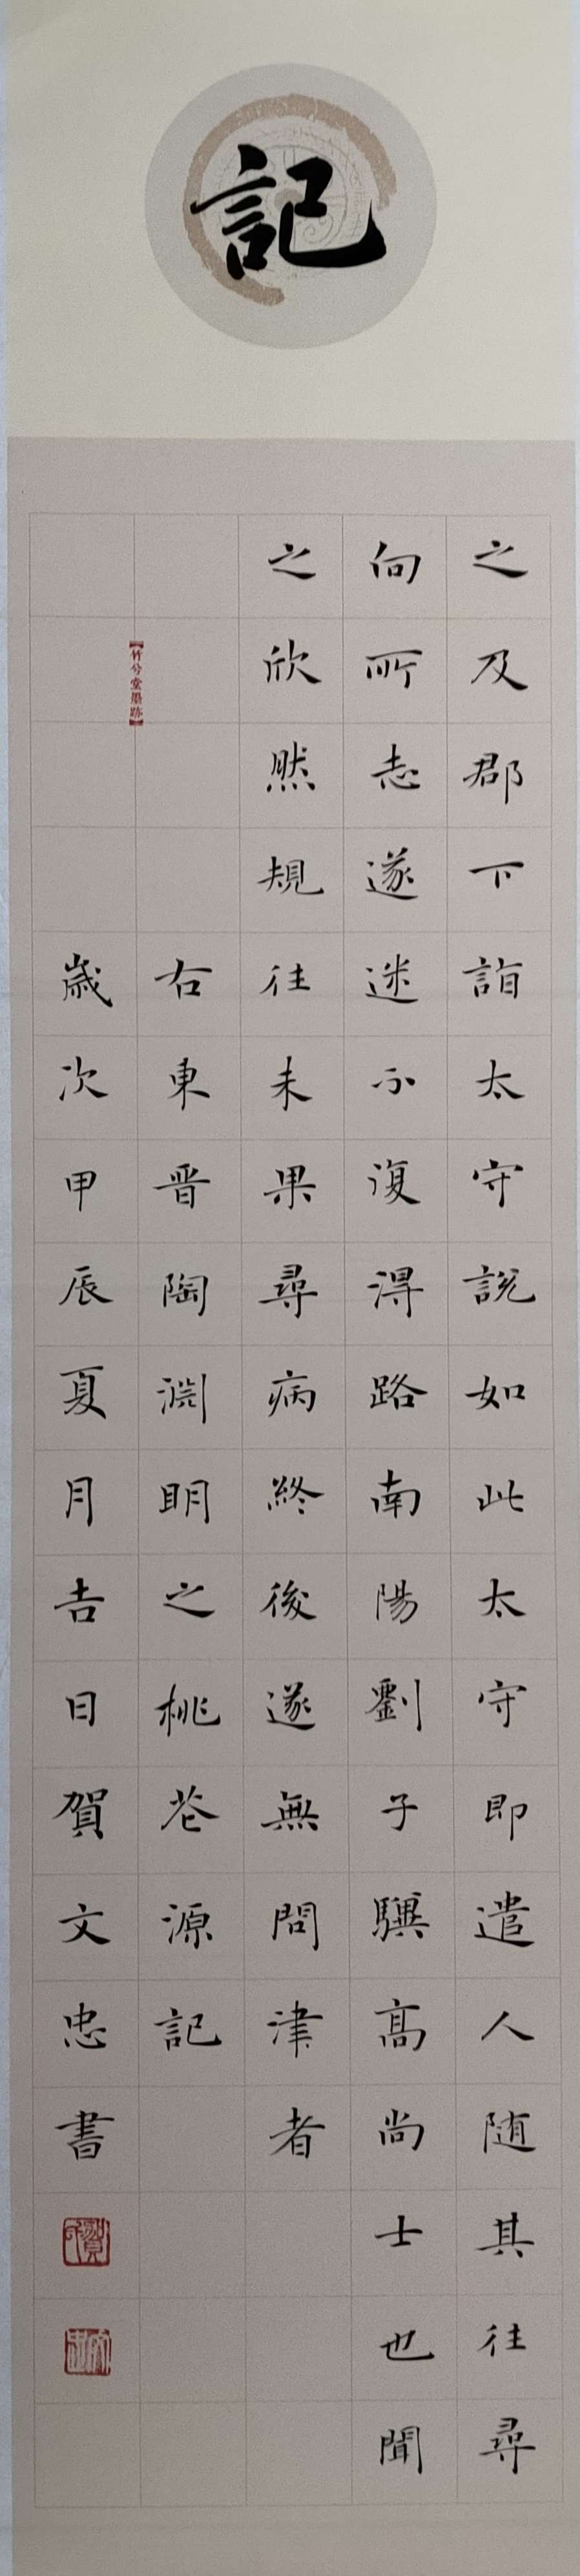 記
之及郡下詣太守說如此太守即遣人随其往尋
向所志遂迷不復得路南陽劉子驥高尚士也聞
之欣然規往未果尋病終後遂無問津者
右東晋陶淵明之桃花源記
【竹兮堂墨跡】
歲次甲辰夏月吉日賀文忠書